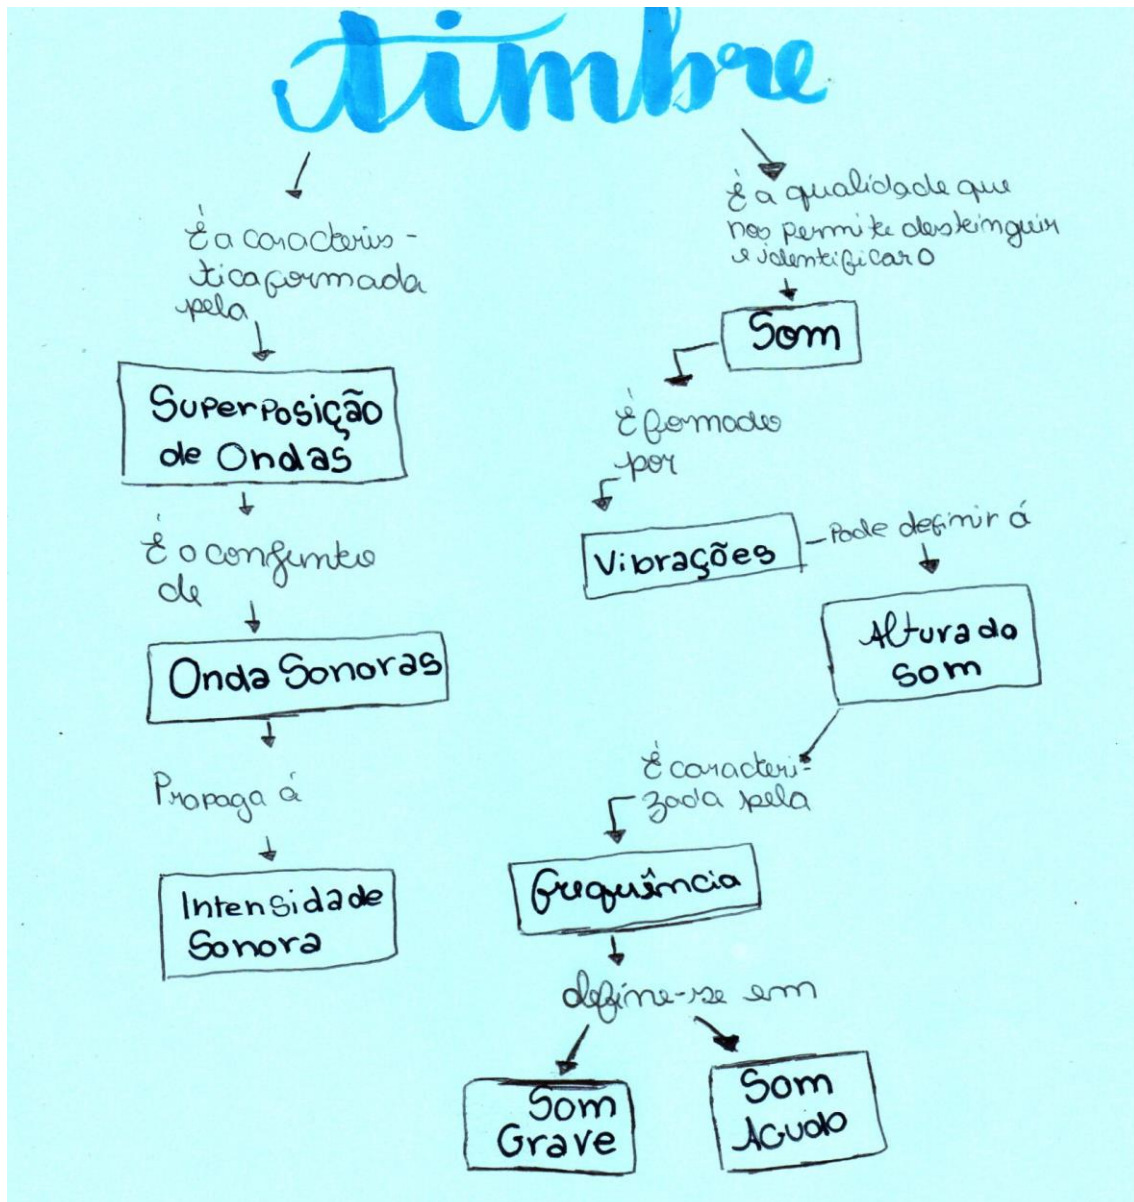 timbre
É a caracteris-
tica formada
pela
Superposição
de Ondas
É o conjunto
de
Onda Sonoras
Propaga á
Intensidade
Sonora
É a qualidade que
nos permite destinguir
e identificar o
Som
É formado
por
Vibrações
Pode definir á
Altura do
som
É caracteri-
zada pela
frequência
define-se em
Som
Grave
Som
Agudo